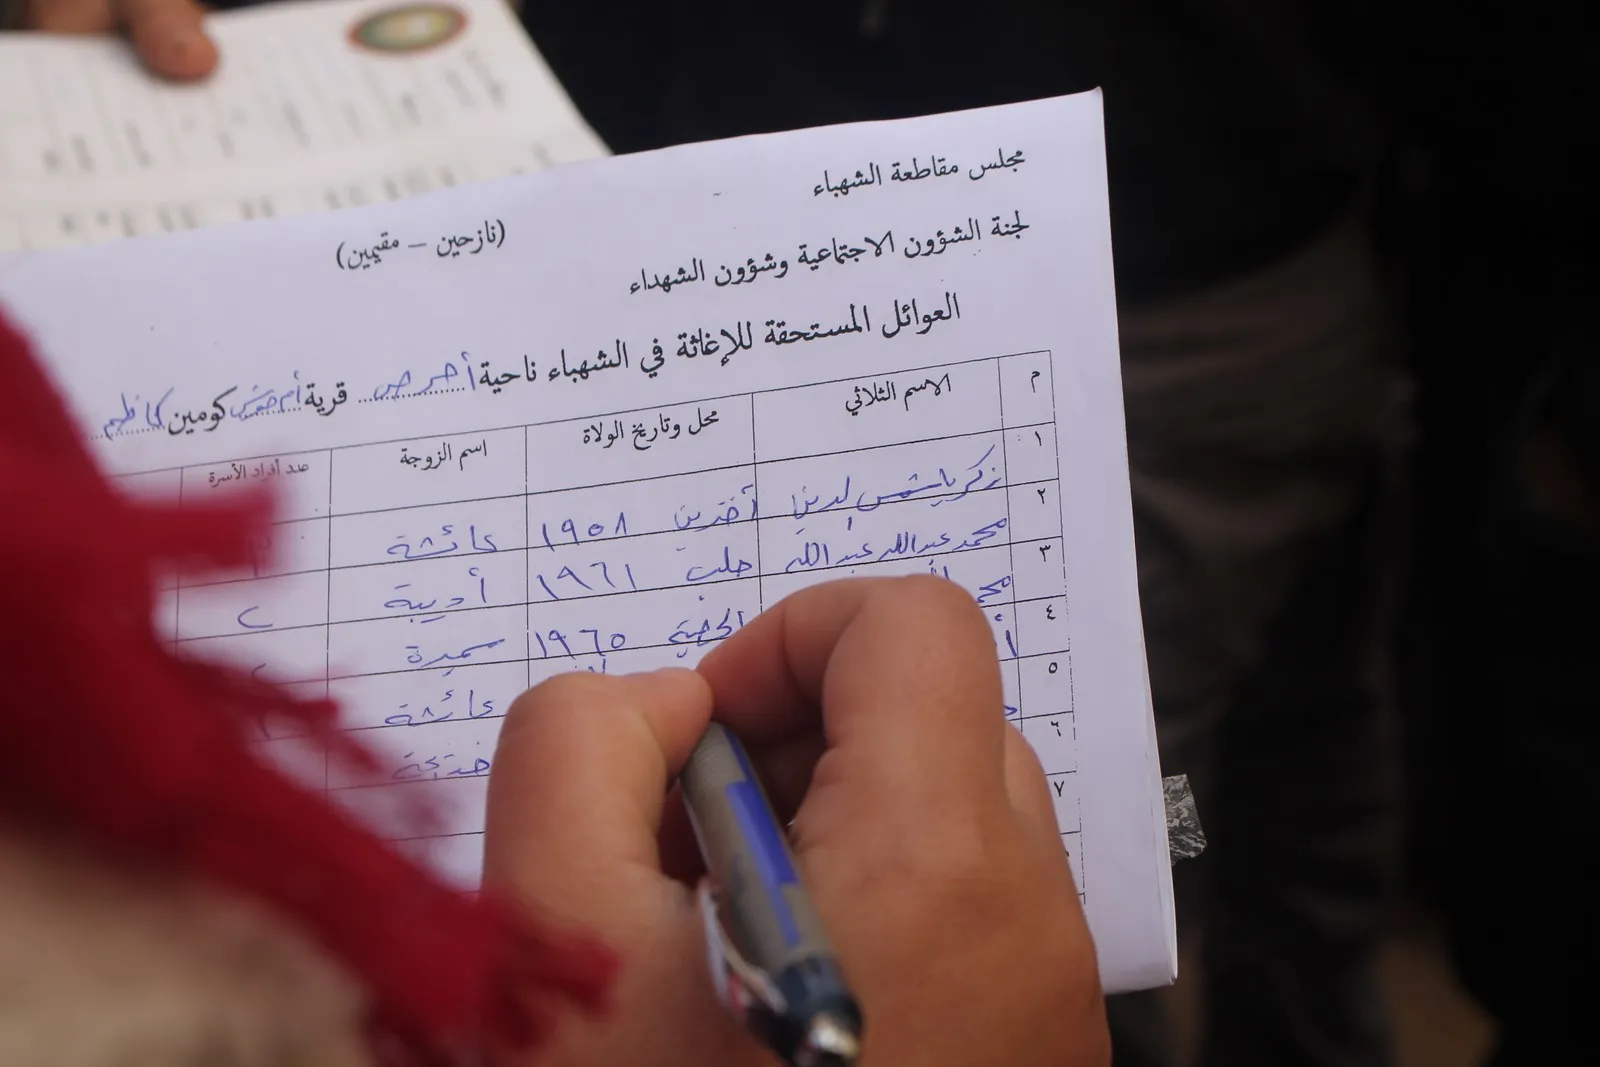 مجلس مقاطعة الشهباء
لجنة الشؤون الاجتماعية وشؤون الشهداء
(نازحين – مقيمين)
العوائل المستحقة للإغاثة في الشهباء ناحية أحرص قرية أم حوش كومين كاظم
م الاسم الثلاثي محل وتاريخ الولاة اسم الزوجة عدد أفراد الأسرة
١ زكريا شمس لدين أخترين ١٩٥٨ عائشة
٢ محمد عبدالله عبدالله حلب ١٩٦١ أديبة ٢
٣ ١٩٦٥ سميرة ٢
٤ عائشة
٥ خديجة
٦
٧